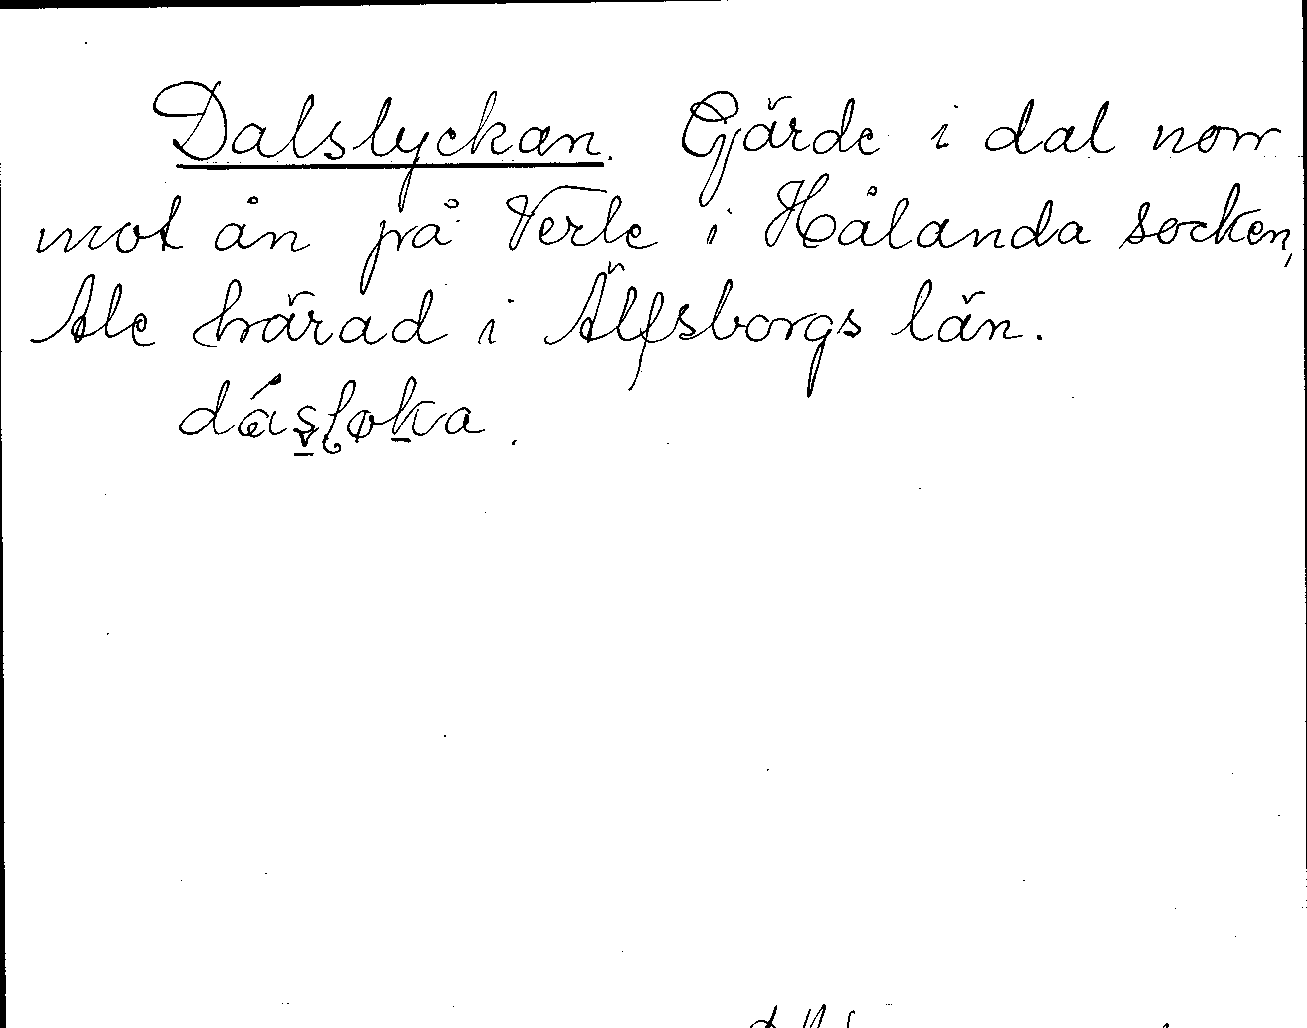 Dalslyckan. Gjärde i dal norr
mot ån på Verle i Hålanda socken,
Ale härad i Älfsborgs län.
dásloka.